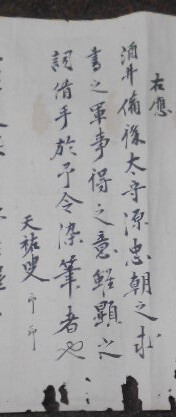 右應
酒井備後太守源忠朝之求
書之軍事得之意雖顯之
詞借手於予令染筆者也
天祐叟 印 印